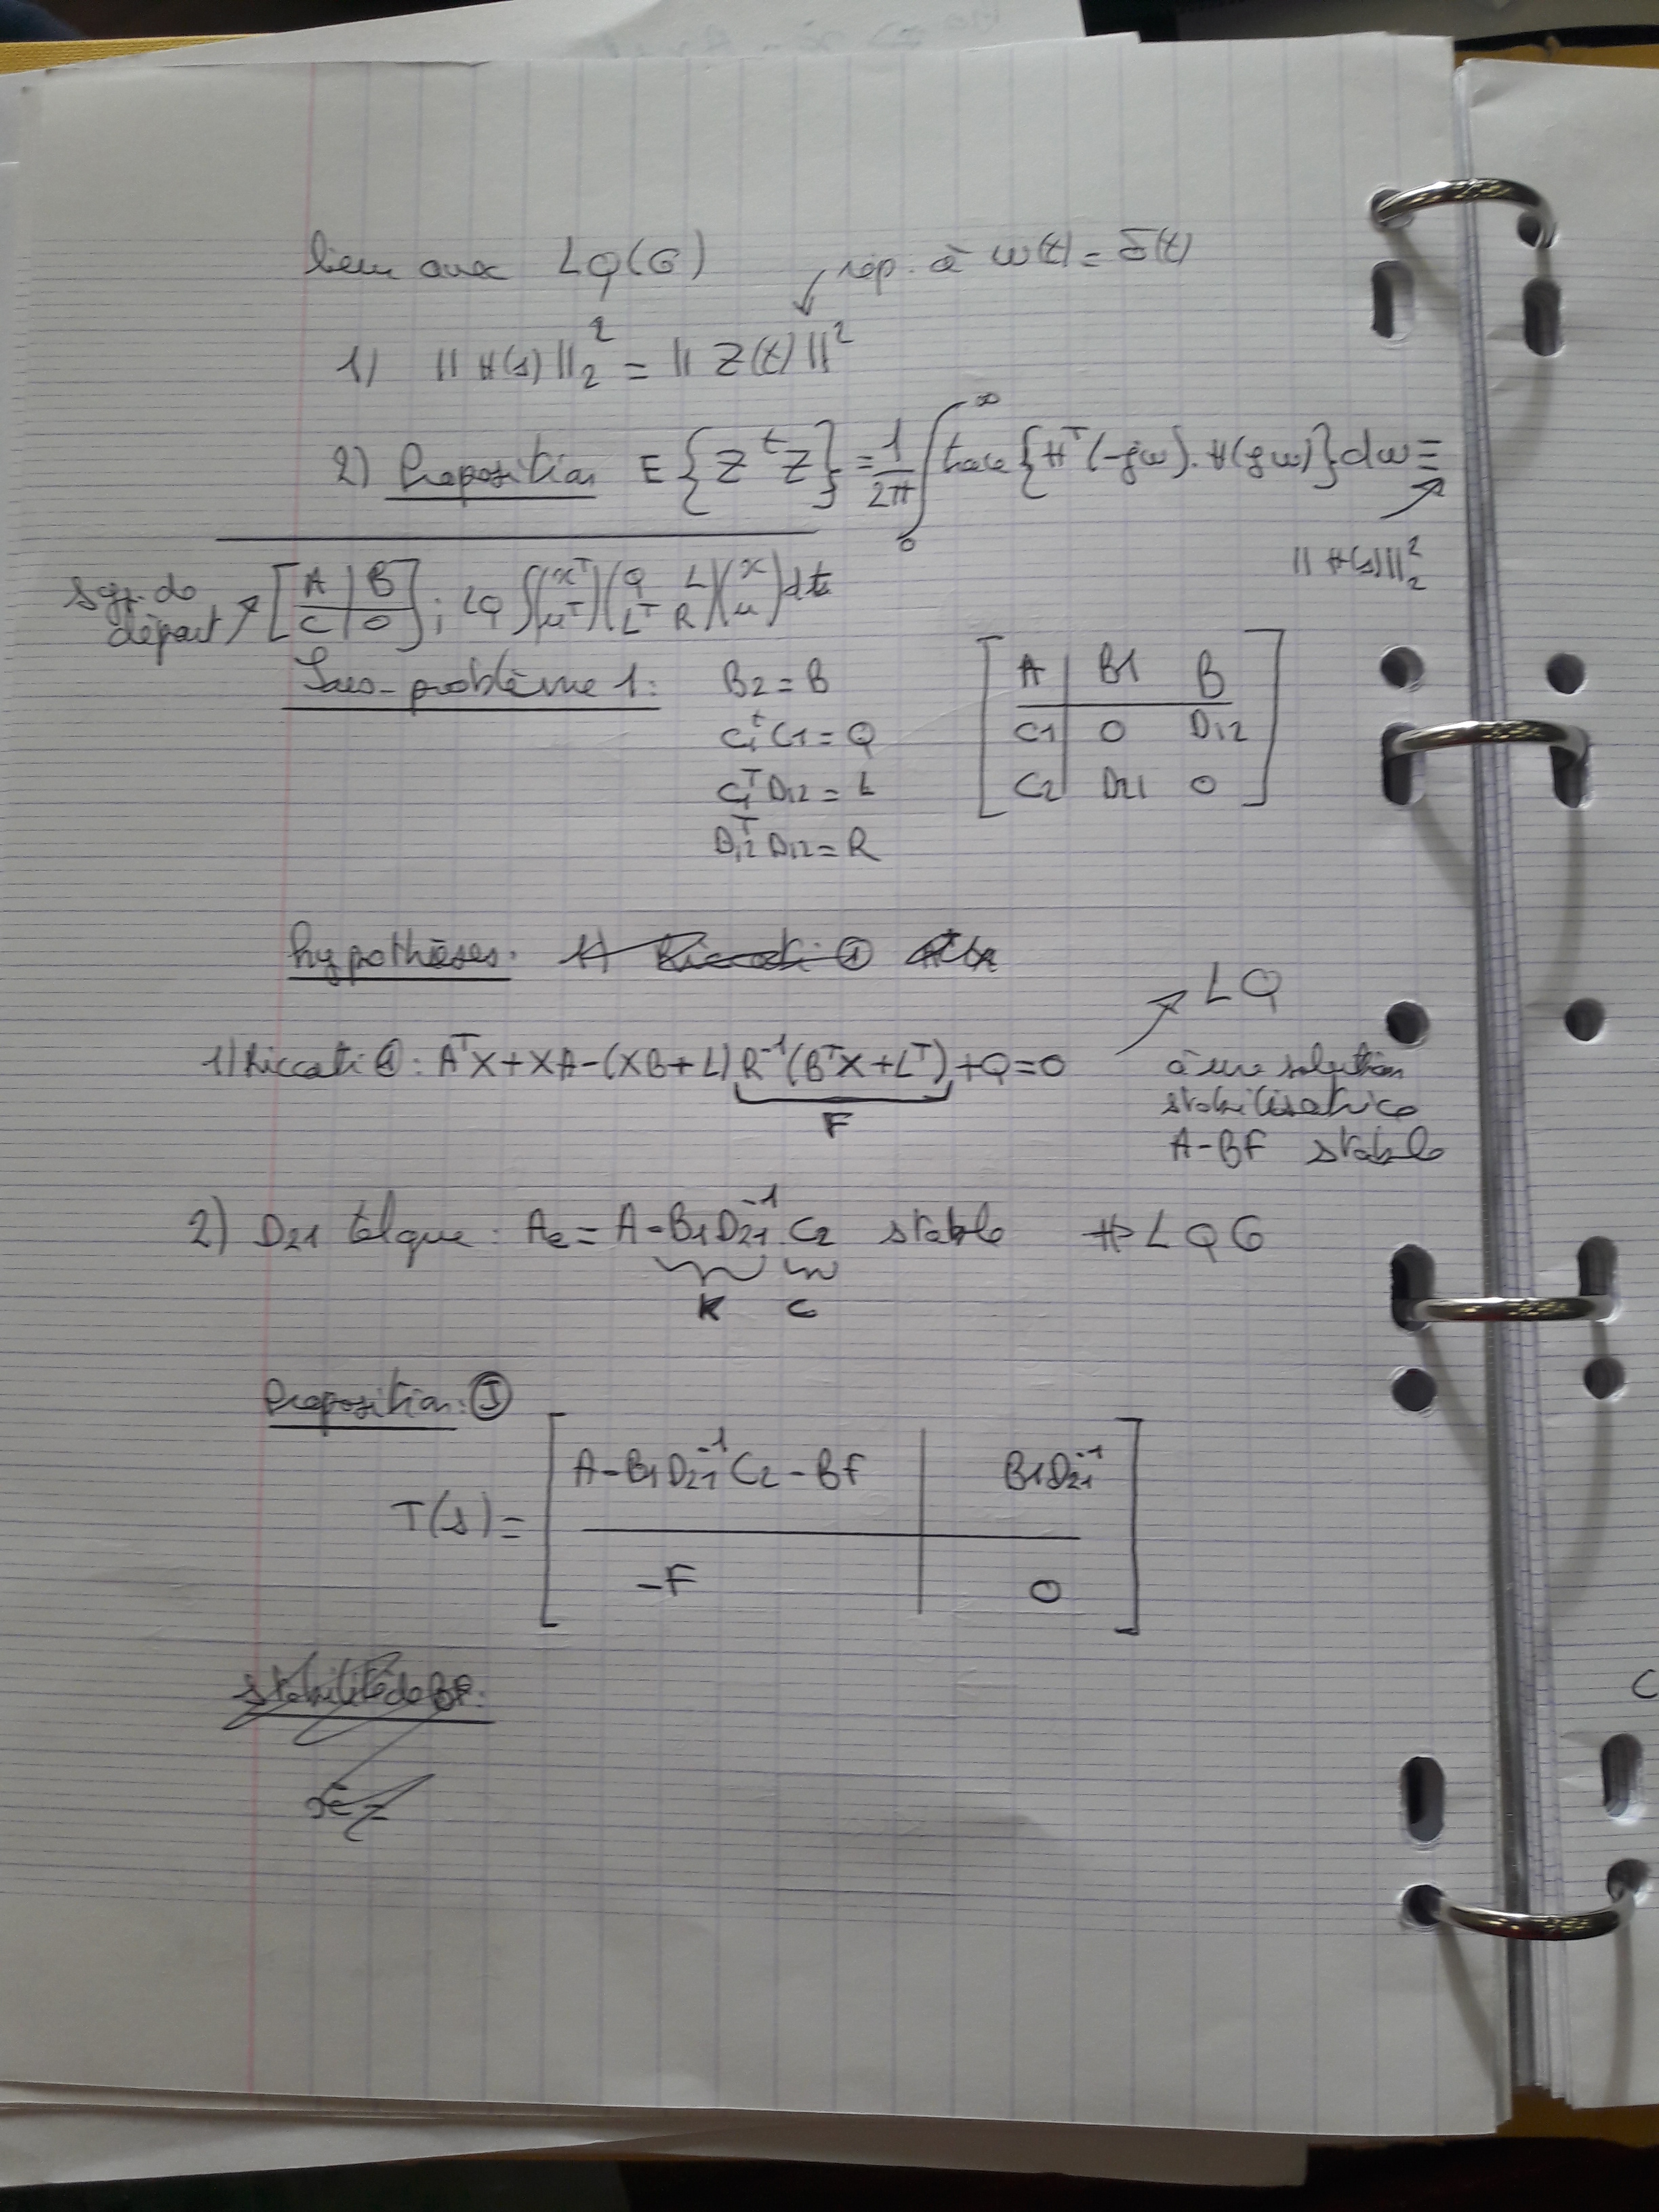 lien avec LQ(G)
rép. à w(t) = δ(t)
1) || H(s) ||₂² = || Z(t) ||²
2) Proposition E{Zᵗ Z} = 1/2π ∫₀^∞ trace {Hᵀ(-jω).H(jω)}dω =
|| H(s) ||₂²
Syst. de départ ↗ [A | B / C | 0] ; LQ ∫(xᵀ uᵀ)(Q L / Lᵀ R)(x / u)dt
Sous-problème 1 : B2 = B
C₁ᵗ C1 = Q
C₁ᵀ D12 = L
D₁₂ᵀ D12 = R
[A | B1 B
C1 | 0 D12
C2 | D21 0]
hypothèses :
1) Riccati ① : AᵀX + XA - (XB + L) R⁻¹ (BᵀX + Lᵀ) + Q = 0
F
↗ LQ
à une solution
stabilisatrice
A - BF stable
2) D21 tel que : Ae = A - B1 D21⁻¹ C2 stable ⇒ LQG
K C
Proposition : ①
T(s) = [A - B1 D21⁻¹ C2 - BF | B1 D21⁻¹
-F | 0]
stabilité de BF :